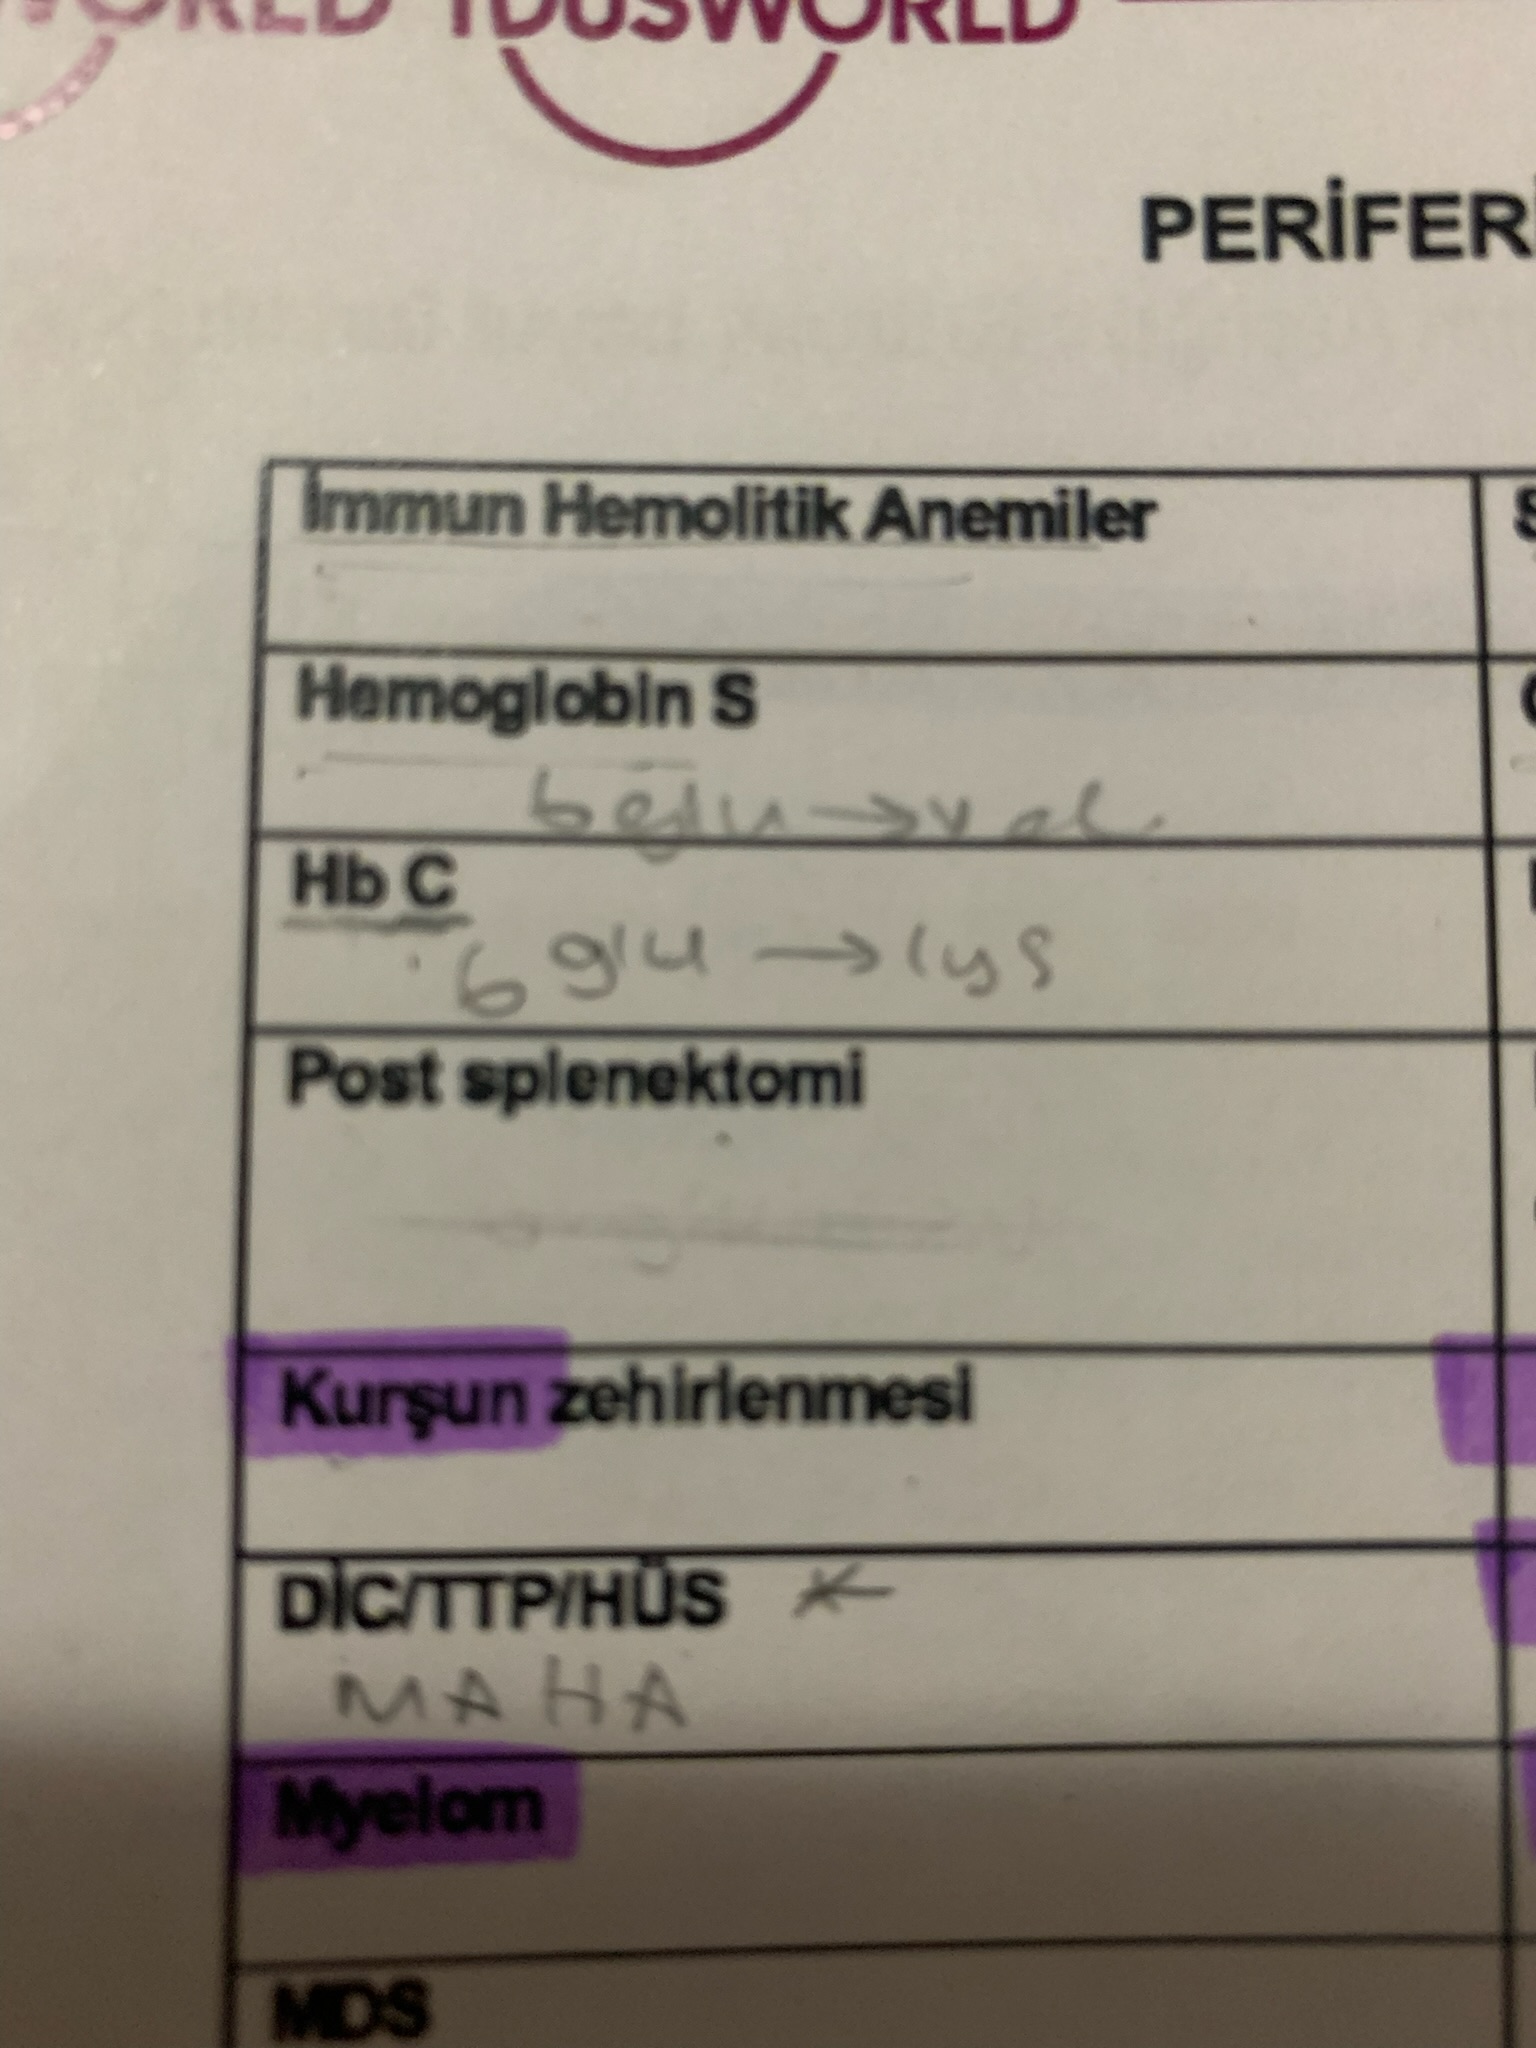 WORLD TDUSWORLD
PERİFERİ
İmmun Hemolitik Anemiler
Hemoglobin S
6 glu → val
Hb C
6 glu → lys
Post splenektomi
Kurşun zehirlenmesi
DİC/TTP/HÜS
MAHA
Myelom
MDS